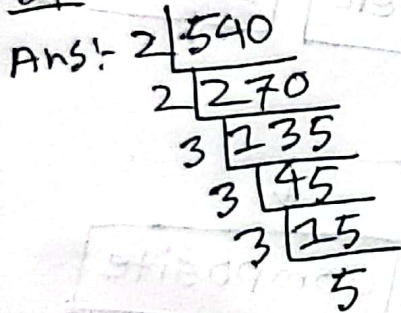 Ans:- 2 540
2 270
3 135
3 45
3 15
5